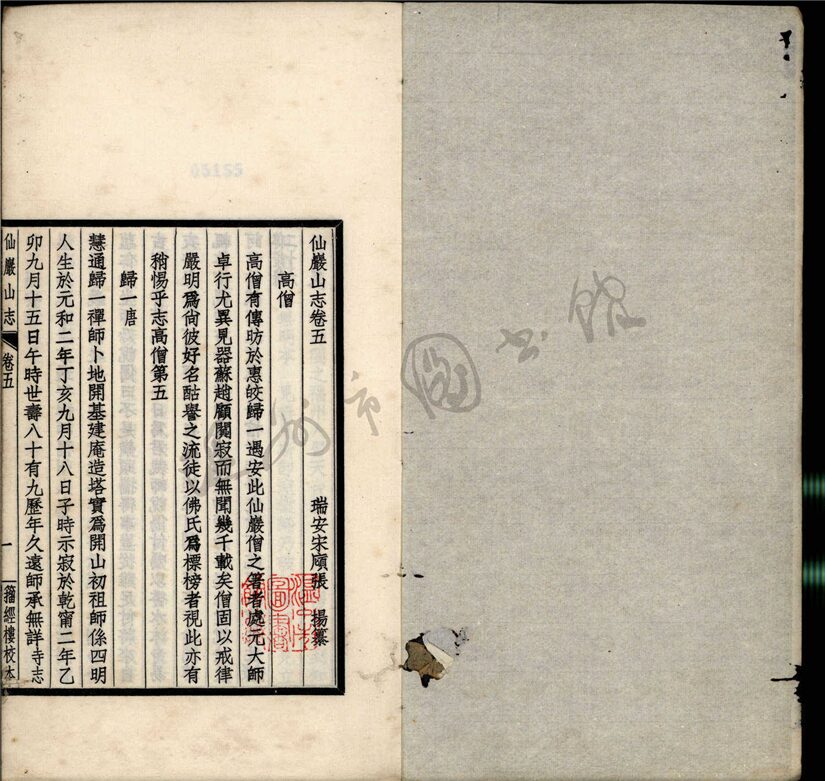 仙巖山志卷五
瑞安宋頎張 揚纂
高僧
高僧有傳昉於惠皎歸一遇安此仙巖僧之著者處元大師
卓行尤異見器蘇趙顧闃寂而無聞幾千載矣僧固以戒律
嚴明爲尙彼好名酤譽之流徒以佛氏爲標榜者視此亦有
稍惕乎志高僧第五
歸一唐
慧通歸一禪師卜地開基建庵造塔實爲開山初祖師係四明
人生於元和二年丁亥九月十八日子時示寂於乾甯二年乙
卯九月十五日午時世壽八十有九歷年久遠師承無詳寺志
仙巖山志
卷五
一
籀經樓校本
05155
州市圖書館